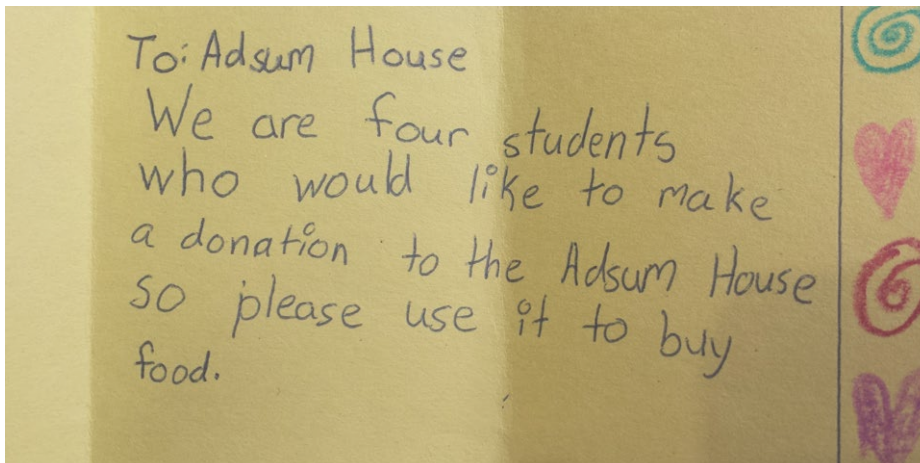 To: Adsum House
We are four students
who would like to make
a donation to the Adsum House
so please use it to buy
food.